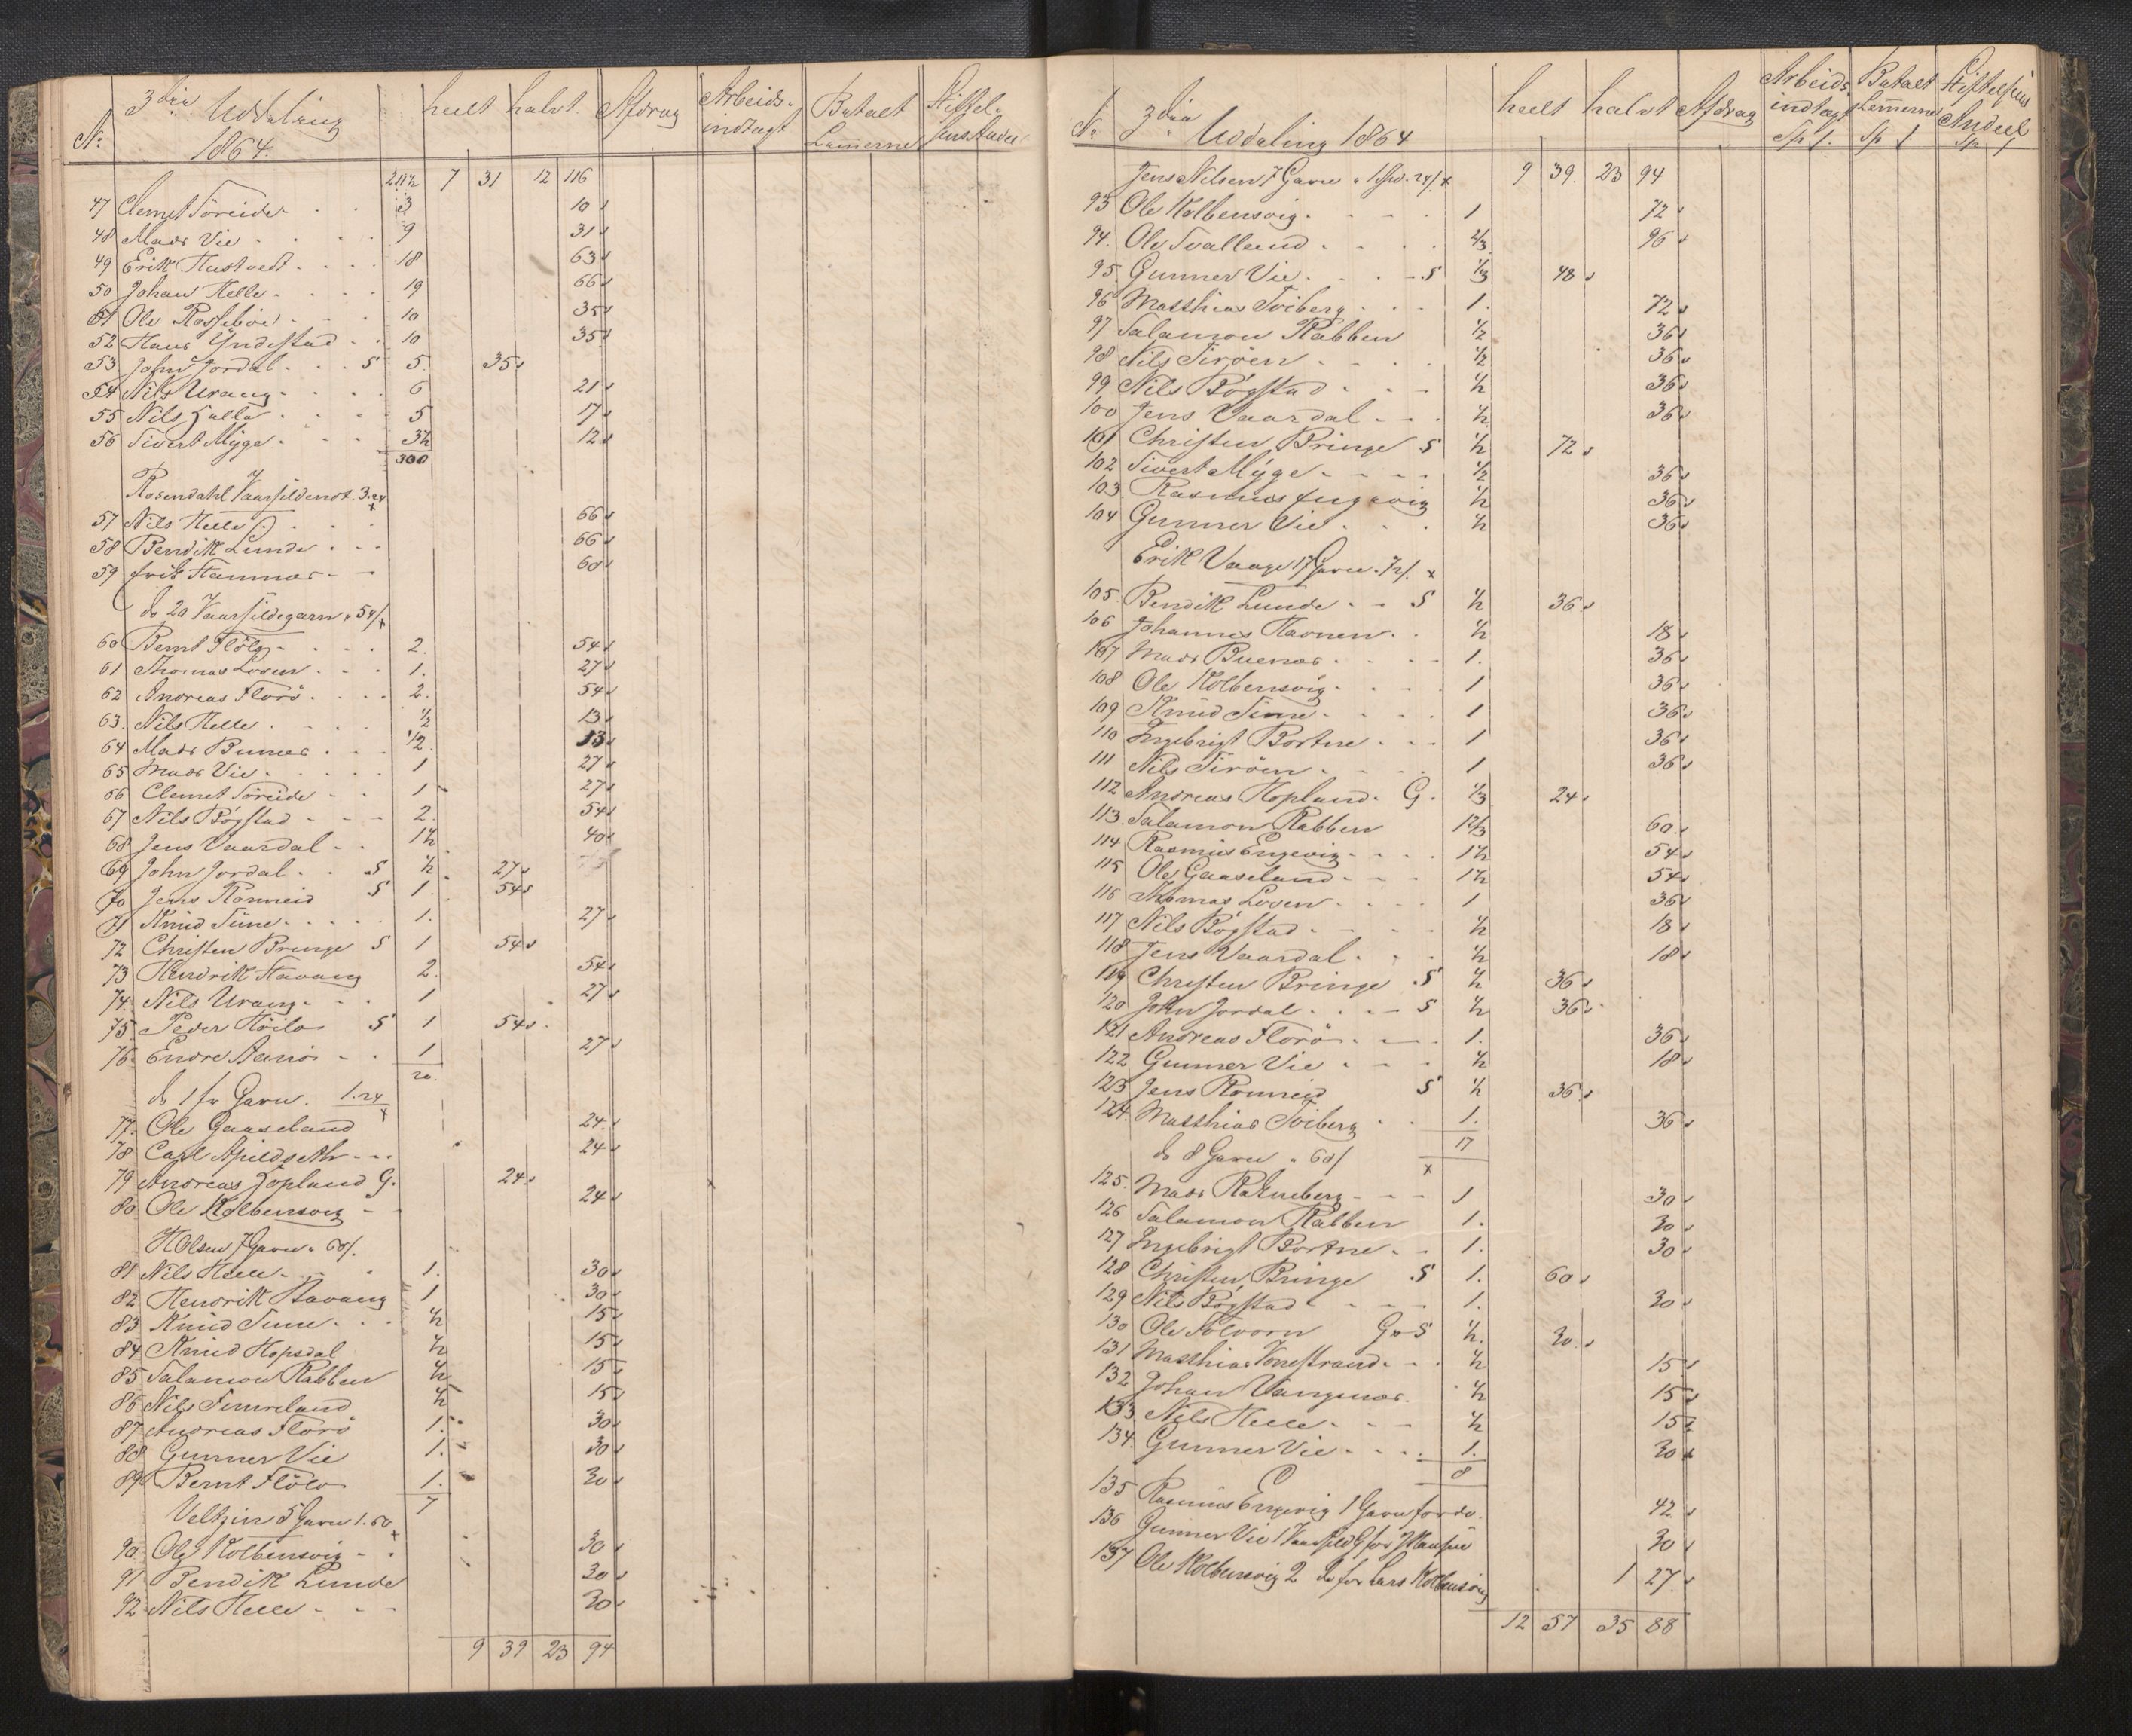 No. 3die Uddeling 1864. heelt halvt. Afdrag Arbeids- indtægt Betalt Lemmerne Stiftel- sens Andeel
211½ 7 31 12 116
47 Clemet Söreide 3 10
48 Mads Vie 9 31
49 Erik Hustvedt 18 63
50 Johan Helle 19 66
51 Ole Rossebøe 10 35
52 Hans Yndestad 10 35
53 John Jordal S 5 35
54 Nils Urang 6 21
55 Nils 5 17
56 Sivert Myge 3½ 12
300
Rosendahl Vaarsildenot. 3.24
57 Nils Helle 66
58 Bendik Lunde 66
59 Hammer 60
do 20 Vaarsildegarn 54/
60 Bernt Flölo 2. 54
61 Thomas Loven 1. 27
62 Andreas Florö 2. 54
63. Nils Helle ½ 13
64 Mads Buenes ½. 13
65 Mads Vie 1 27
66 Clemet Söreide 1 27
67 Nils Bögstad 2. 54
68 Jens Vaardal 1½ 40
69 John Jordal S ½ 27
70 Jens Ramneid S 1. 54
71 Knud Tune 1. 27
72 Christen Bringe S 1 54
73 Hendrik Havang 2. 54
74. Nils Urang 1 27
75 Peder Höilo S 1 54
76 Endre 1 27
20.
do 1 fr Garn. 1.24
77. Ole Gaaseland 24
78 Carl Apildseth 24
79 Andreas Hopland G. 24
80 Ole Kolbensvig 24
HOlsen 7 Garn 60/.
81 Nils Helle 1. 30
82 Hendrik Havang 1 30
83 Knud Tune ½ 15
84 Knud Hopsdal ½ 15
85 Salamon Rabben ½ 15
86 Nils Timreland ½ 15
87 Andreas Florö 1. 30
88 Gunner Vie 1. 30
89 Bernt Flölo 1. 30
7
Veltzin 5 Garn 1.60
90 Ole Kolbensvig 30
91 Bendik Lunde 30
92 Nils Helle 30
9 39 23 94
No. 3die Uddeling 1864 heelt halvt Afdrag Arbeids indtægt Sp ſ. Betalt Lemmerne Sp ſ Stiftelsens Andeel Sp ſ
Jens Nilsen 7 Garn 1 Spd. 24/. 9 39. 23 94
93 Ole Kolbensvig 1 72
94. Ole Svalleund ⅔ 96
95. Gunner Vie S ⅓ 48
96 Matthias Tviberg 1. 72
97 Salamon Rabben ½ 36
98 Nils Tiröen ½ 36
99 Nils Bögstad ½ 36
100 Jens Vaardal ½ 36
101 Christen Bringe S ½ 72
102 Sivert Myge ½ 36
103. Rasmus Engevig ½ 36
104 Gunner Vie ½ 36
Erik Vaage 17 Garn. 72/.
105. Bendik Lunde S ½ 36
106 Johannes Havnen ½ 18
107 Mads Buenes 1. 36
108 Ole Kolbensvig 1 36
109 Knud Tune 1 36
110 Ingebrigt Bortne 1 36
111 Nils Tiröen 1 36
112 Andreas Hopland G. ⅓ 24
113. Salamon Rabben 1⅔ 60
114 Rasmus Engevig 1½ 54
115 Ole Gaaseland 1½ 54
116 Thomas Loven 1 36
117 Nils Bögstad ½ 18
118 Jens Vaardal ½ 18
119 Christen Bringe S ½ 36
120 John Jordal S ½ 36
121 Andreas Florö 1. 36
122 Gunner Vie ½ 18
123 Jens Ramneid S ½ 36
124. Matthias Tviberg 1. 36
17
do 8 Garn 60/
125. Mads Rakneberg 1 30
126 Salamon Rabben 1. 30
127 Ingebrigt Bortne 1. 30
128 Christen Bringe S 1. 60
129 Nils Bögstad 1. 30
130 Ole Solvorn G S ½. 30
131 Matthias ½ 15
132 Johan Vangenes ½ 15
133 Nils Helle ½ 15
134. Gunner Vie 1. 30
8
135 Rasmus Engevig 1 Garn for do. 42
136 Gunner Vie 1 for JHansen 30
137 Ole Kolbensvig 2 do for Lars Kolbensvig 1 27
12 57 35 88